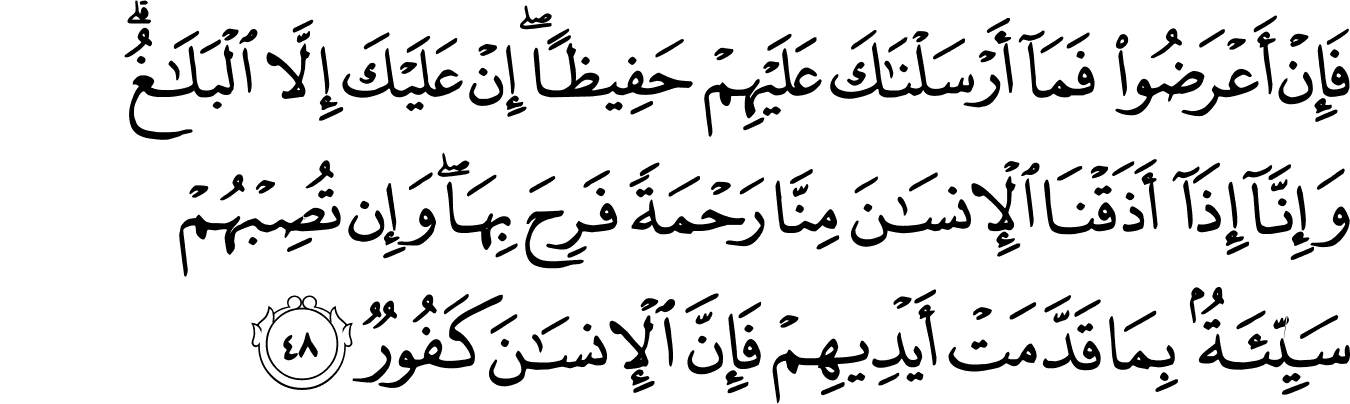 فَإِنْ أَعْرَضُوا۟ فَمَآ أَرْسَلْنَـٰكَ عَلَيْهِمْ حَفِيظًا ۖ إِنْ عَلَيْكَ إِلَّا ٱلْبَلَـٰغُ ۗ
وَإِنَّآ إِذَآ أَذَقْنَا ٱلْإِنسَـٰنَ مِنَّا رَحْمَةً فَرِحَ بِهَا ۖ وَإِن تُصِبْهُمْ
سَيِّئَةٌۢ بِمَا قَدَّمَتْ أَيْدِيهِمْ فَإِنَّ ٱلْإِنسَـٰنَ كَفُورٌ ٤٨